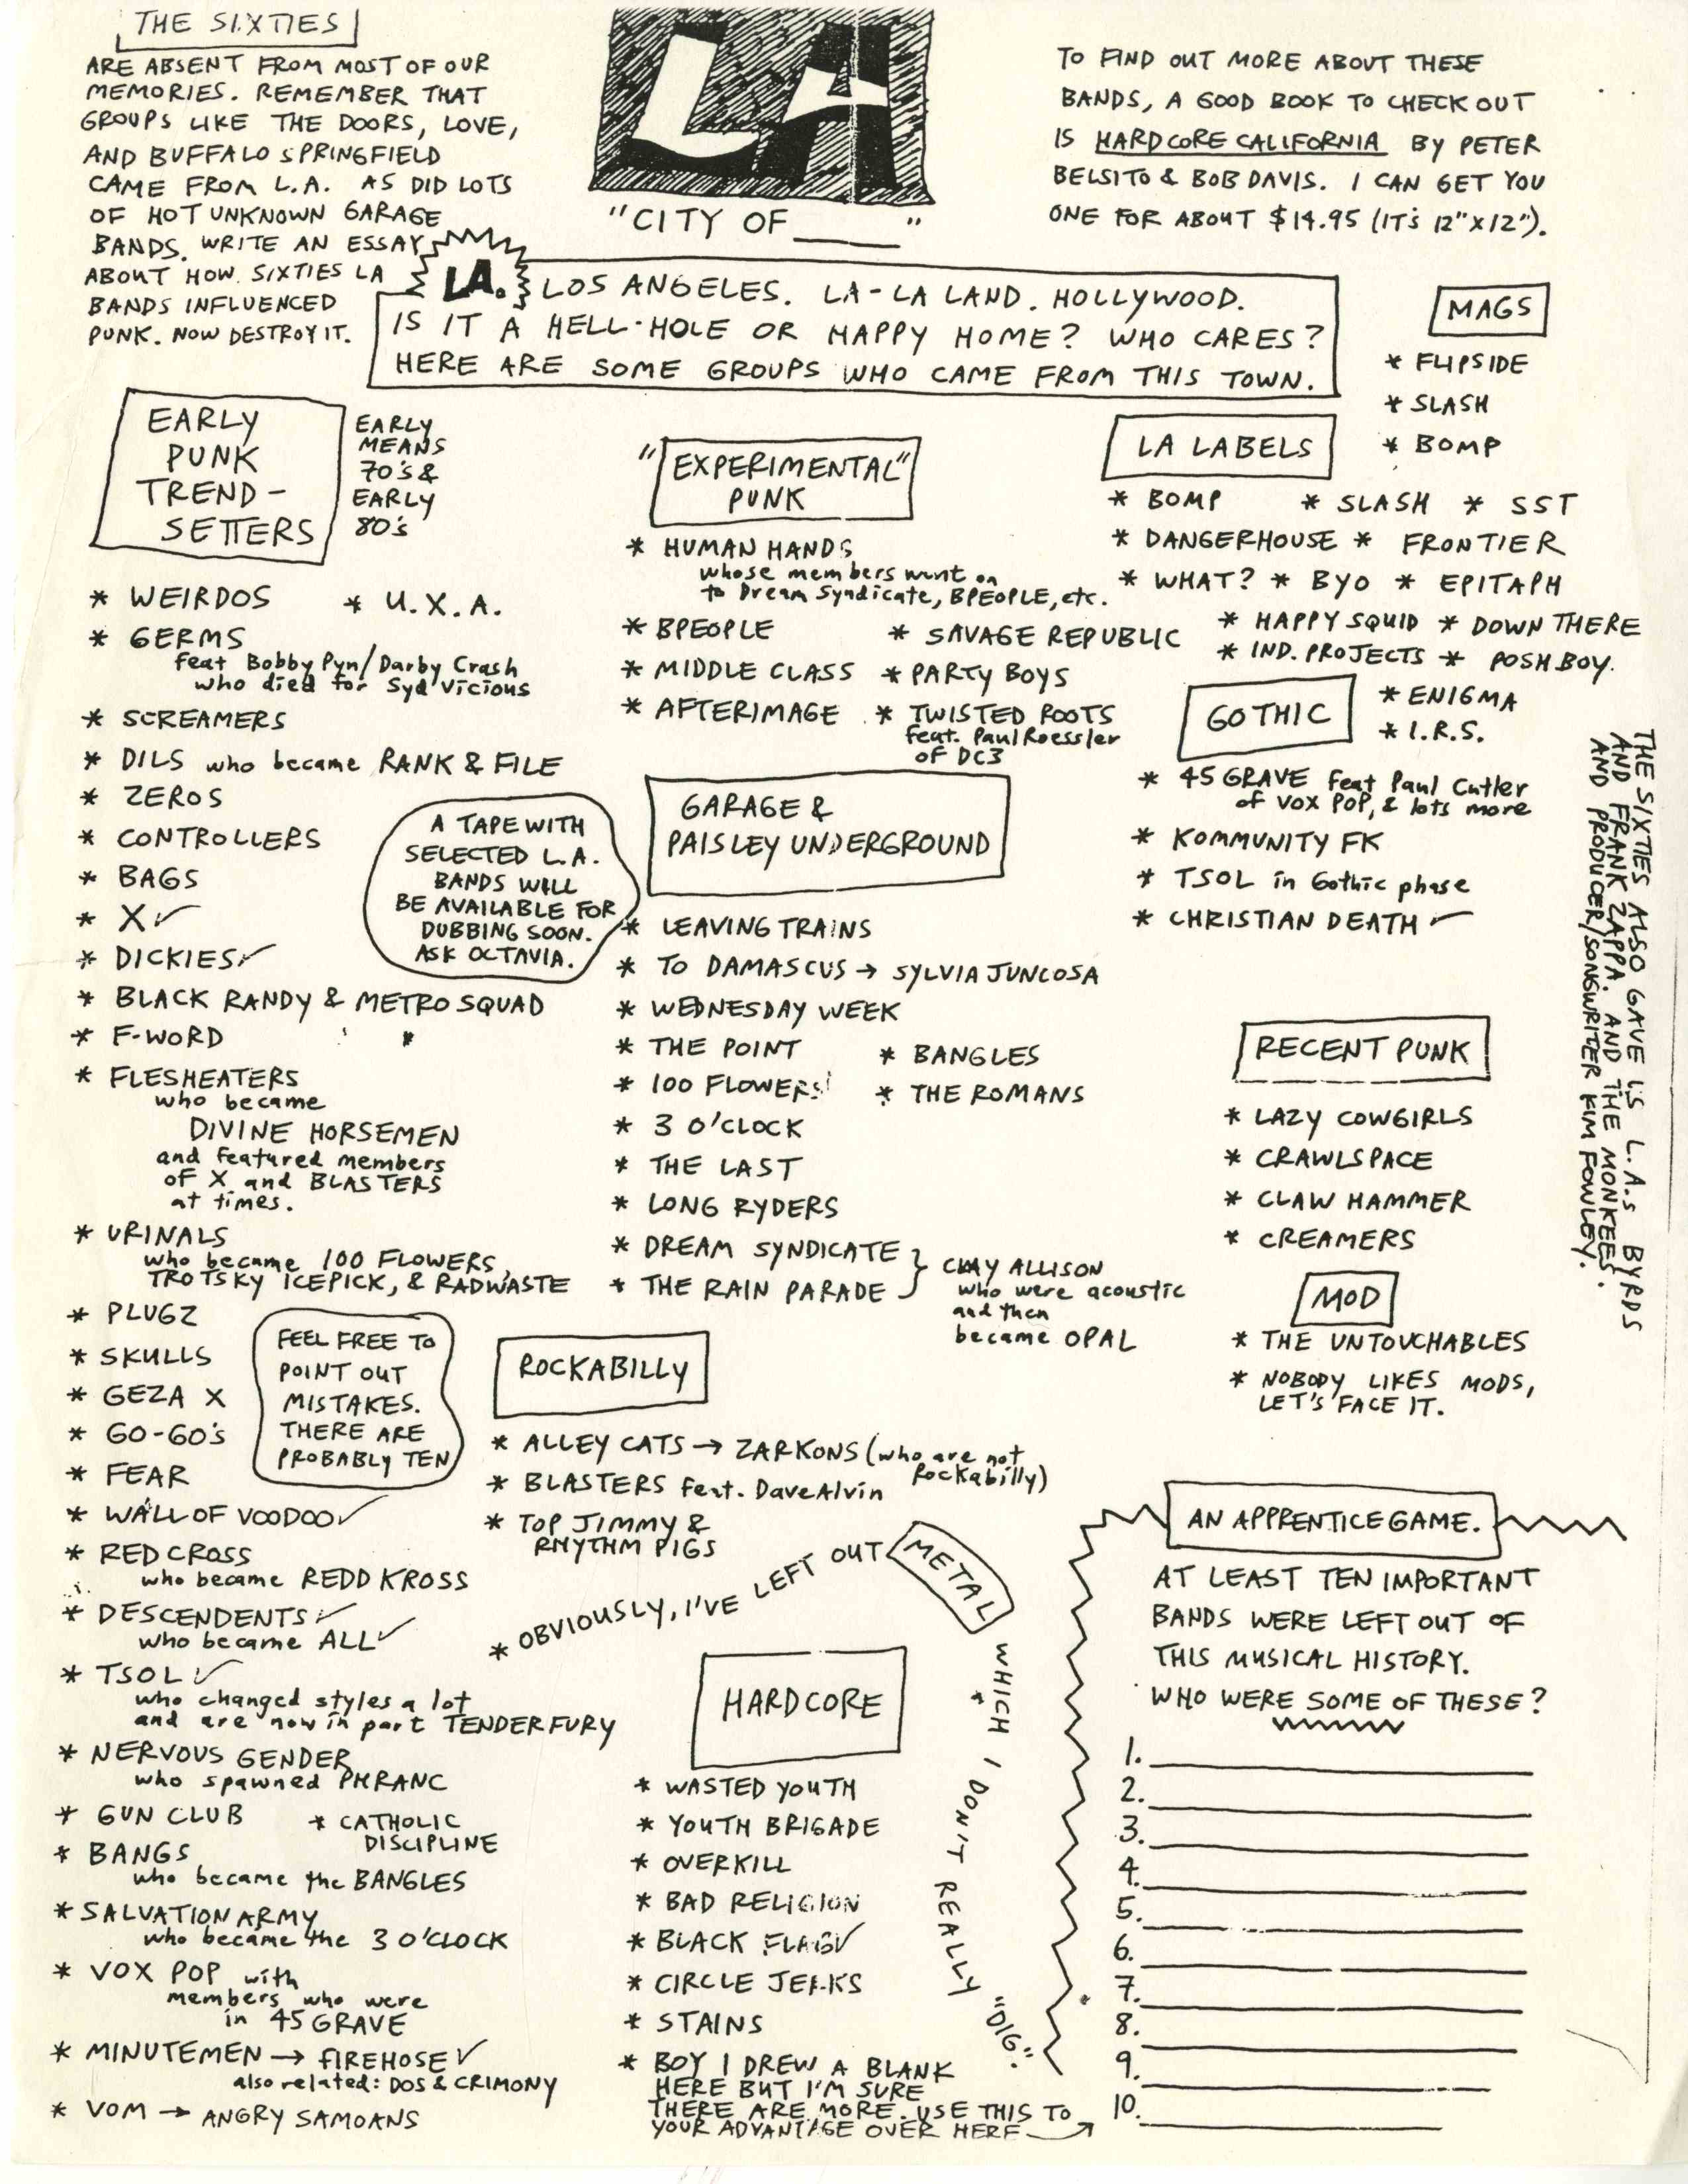 THE SIXTIES
ARE ABSENT FROM MOST OF OUR
MEMORIES. REMEMBER THAT
GROUPS LIKE THE DOORS, LOVE,
AND BUFFALO SPRINGFIELD
CAME FROM L.A. AS DID LOTS
OF HOT UNKNOWN GARAGE
BANDS. WRITE AN ESSAY
ABOUT HOW SIXTIES LA
BANDS INFLUENCED
PUNK. NOW DESTROY IT.
LA
"CITY OF ____"
TO FIND OUT MORE ABOUT THESE
BANDS, A GOOD BOOK TO CHECK OUT
IS HARDCORE CALIFORNIA BY PETER
BELSITO & BOB DAVIS. I CAN GET YOU
ONE FOR ABOUT $14.95 (IT'S 12"X12").
LA. LOS ANGELES. LA-LA LAND. HOLLYWOOD.
IS IT A HELL-HOLE OR HAPPY HOME? WHO CARES?
HERE ARE SOME GROUPS WHO CAME FROM THIS TOWN.
MAGS
* FLIPSIDE
* SLASH
* BOMP
EARLY
PUNK
TREND-
SETTERS
EARLY
MEANS
70's &
EARLY
80's
* WEIRDOS * U.X.A.
* GERMS
feat Bobby Pyn/Darby Crash
who died for Syd Vicious
* SCREAMERS
* DILS who became RANK & FILE
* ZEROS
* CONTROLLERS
* BAGS
* X ✓
* DICKIES ✓
* BLACK RANDY & METRO SQUAD
* F-WORD
* FLESHEATERS
who became
DIVINE HORSEMEN
and featured members
of X and BLASTERS
at times.
* URINALS
who became 100 FLOWERS,
TROTSKY ICEPICK, & RADWASTE
* PLUGZ
* SKULLS
* GEZA X
* GO-GO's
* FEAR
* WALL OF VOODOO ✓
* RED CROSS
who became REDD KROSS
* DESCENDENTS ✓
who became ALL ✓
* TSOL ✓
who changed styles a lot
and are now in part TENDER FURY
* NERVOUS GENDER
who spawned PHRANC
* GUN CLUB * CATHOLIC
DISCIPLINE
* BANGS
who became the BANGLES
* SALVATION ARMY
who became the 3 O'CLOCK
* VOX POP with
members who were
in 45 GRAVE
* MINUTEMEN → FIREHOSE ✓
also related: DOS & CRIMONY
* VOM → ANGRY SAMOANS
A TAPE WITH
SELECTED L.A.
BANDS WILL
BE AVAILABLE FOR
DUBBING SOON.
ASK OCTAVIA.
FEEL FREE TO
POINT OUT
MISTAKES.
THERE ARE
PROBABLY TEN
"EXPERIMENTAL"
PUNK
* HUMAN HANDS
whose members went on
to Dream Syndicate, BPEOPLE, etc.
* BPEOPLE * SAVAGE REPUBLIC
* MIDDLE CLASS * PARTY BOYS
* AFTERIMAGE * TWISTED ROOTS
feat. Paul Roessler
of DC3
GARAGE &
PAISLEY UNDERGROUND
* LEAVING TRAINS
* TO DAMASCUS → SYLVIA JUNCOSA
* WEDNESDAY WEEK
* THE POINT * BANGLES
* 100 FLOWERS * THE ROMANS
* 3 O'CLOCK
* THE LAST
* LONG RYDERS
* DREAM SYNDICATE
* THE RAIN PARADE
} CLAY ALLISON
who were acoustic
and then
became OPAL
ROCKABILLY
* ALLEY CATS → ZARKONS (who are not
Rockabilly)
* BLASTERS feat. Dave Alvin
* TOP JIMMY &
RHYTHM PIGS
* OBVIOUSLY, I'VE LEFT OUT METAL WHICH I DON'T REALLY "DIG."
HARDCORE
* WASTED YOUTH
* YOUTH BRIGADE
* OVERKILL
* BAD RELIGION
* BLACK FLAG ✓
* CIRCLE JERKS
* STAINS
* BOY I DREW A BLANK
HERE BUT I'M SURE
THERE ARE MORE. USE THIS TO
YOUR ADVANTAGE OVER HERE →
LA LABELS
* BOMP * SLASH * SST
* DANGERHOUSE * FRONTIER
* WHAT? * BYO * EPITAPH
* HAPPY SQUID * DOWN THERE
* IND. PROJECTS * POSH BOY.
* ENIGMA
* I.R.S.
GOTHIC
* 45 GRAVE feat Paul Cutler
of VOX POP, & lots more
* KOMMUNITY FK
* TSOL in Gothic phase
* CHRISTIAN DEATH ✓
RECENT PUNK
* LAZY COWGIRLS
* CRAWLSPACE
* CLAW HAMMER
* CREAMERS
MOD
* THE UNTOUCHABLES
* NOBODY LIKES MODS,
LET'S FACE IT.
THE SIXTIES ALSO GAVE US L.A.s BYRDS
AND FRANK ZAPPA. AND THE MONKEES.
AND PRODUCER/SONGWRITER KIM FOWLEY.
AN APPRENTICE GAME.
AT LEAST TEN IMPORTANT
BANDS WERE LEFT OUT OF
THIS MUSICAL HISTORY.
WHO WERE SOME OF THESE?
1.
2.
3.
4.
5.
6.
7.
8.
9.
10.